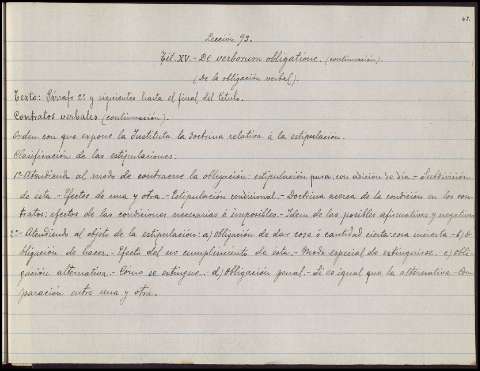 Lección 93.
Tít. XV.- De verborum obligatione. (continuación).
(De la obligación verbal).
Texto: Párrafo 2º y siguientes hasta el final del título.
Contratos verbales (continuación).
Orden con que expone la Instituta la doctrina relativa á la estipulación.
Clasificación de las estipulaciones.
1º Atendiendo al modo de contraerse la obligación: estipulación pura, con adición de día.- Subdivisión
de esta.- Efectos de una y otra.- Estipulación condicional.- Doctrina acerca de la condición en los con-
tratos; efectos de las condiciones necesarias é imposibles.- Idem de las posibles afirmativas y negativas
2º- Atendiendo al objeto de la estipulación: a) Obligación de dar cosa ó cantidad cierta: cosa incierta.- b) O-
bligación de hacer.- Efecto del no cumplimiento de esta.- Modo especial de extinguirse. c) Obli-
gación alternativa.- Como se extingue. d) Obligación penal.- Si es igual que la alternativa.- Com-
paración entre una y otra.